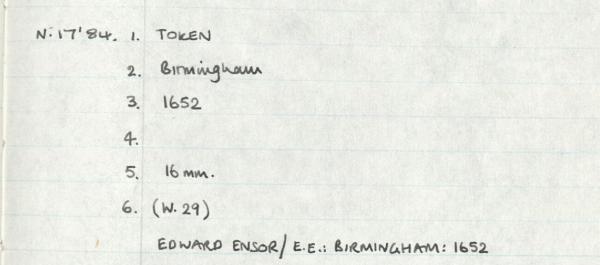 N:17'84. 1. TOKEN
2. Birmingham
3. 1652
4.
5. 16mm.
6. (W.29)
EDWARD ENSOR/E.E.: BIRMINGHAM: 1652